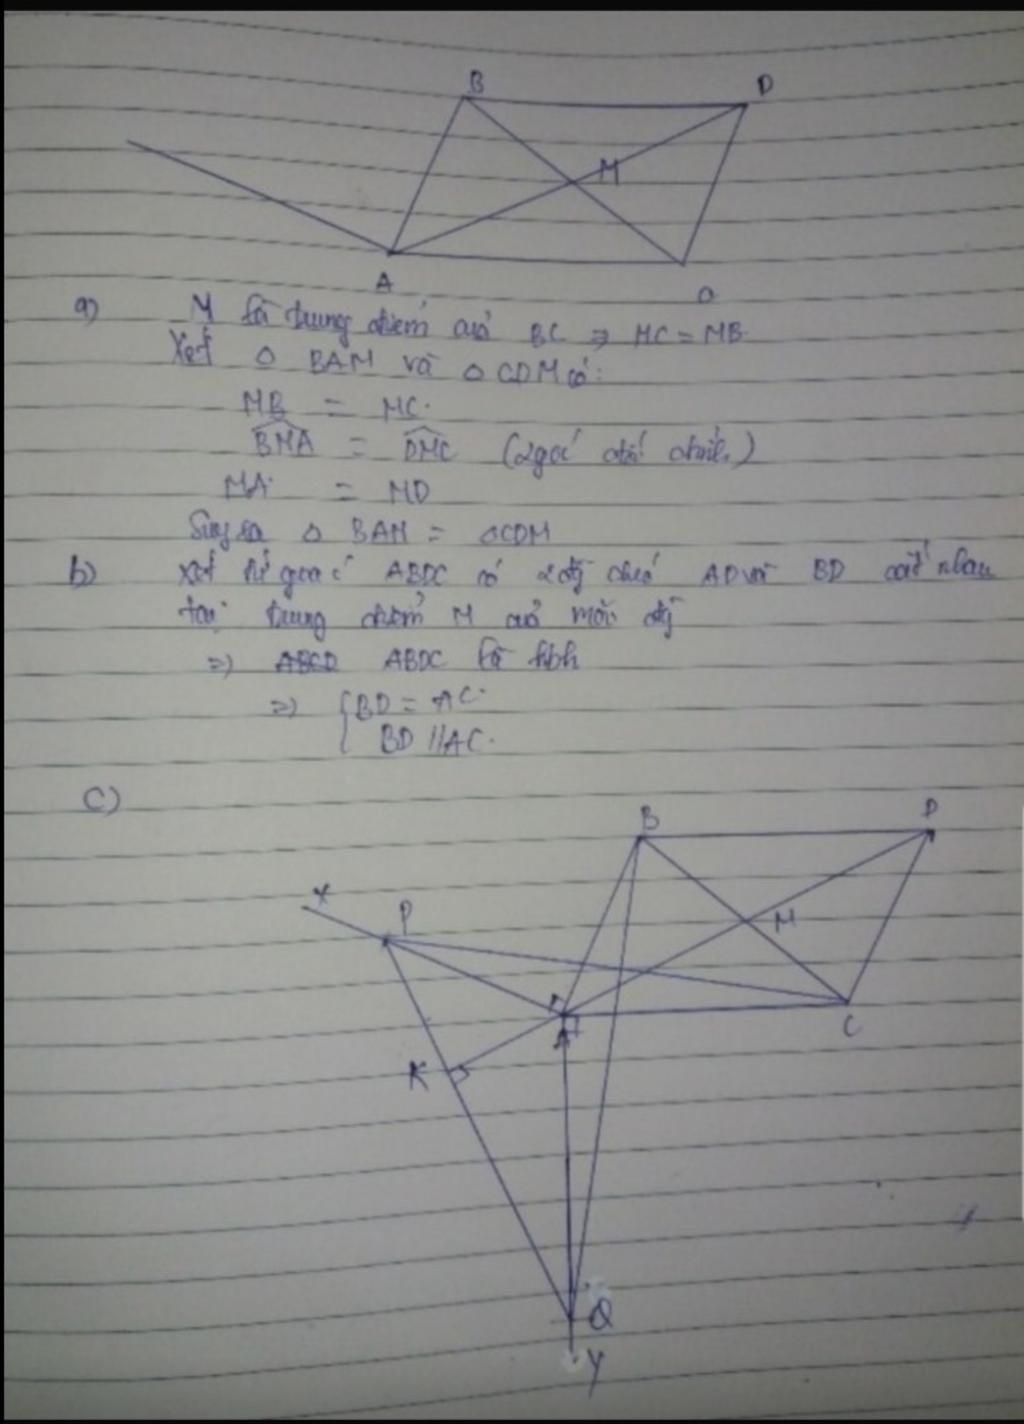 B D
M
A
a) M là trung điểm của BC => MC = MB
Xét △ BAM và △ CDM có:
MB = MC.
BMA = DMC (2 góc đối đỉnh.)
MA = MD
Suy ra △ BAM = △CDM
b) Xét tứ giác ABDC có 2 đg chéo AD và BD cắt nhau
tại trung điểm M của mỗi đg
=> ABCD ABDC là hbh
=> { BD = AC.
BD // AC.
c)
B D
x P
M
A C
K
Q
y